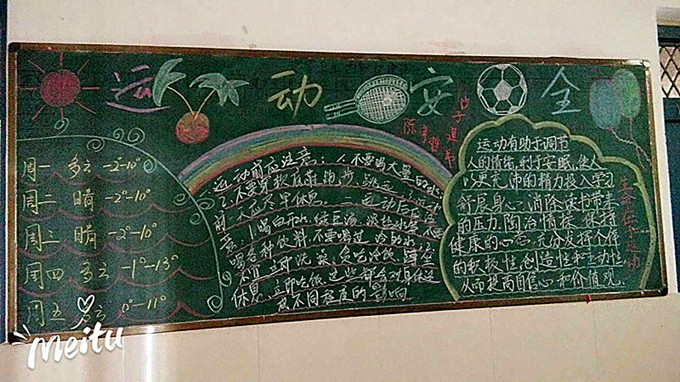 运动安全
周一 多云 -2°-10°
周二 晴 -2°-10°
周三 晴 -2°-10°
周四 多云 -1°-13°
周五 多云 0°-11°
运动前应注意：1.不要喝大量的水
2.不要穿软底鞋跑步
运动后应注
意：1.喝白开水、绿豆汤
喝各种饮料，不要喝过冷的水
不可立即洗澡
休息 立即吃饭 这些都会对身体造
成不同程度的影响
运动有助于调节
人的情绪,利于安眠,使人
以更充沛的精力投入学习
舒展身心,消除读书带来
的压力,陶冶情操,保持
健康的心态,充分发挥个体
的积极性,创造性和主动性
从而提高自信心和价值观.
生命在于运动
Meitu